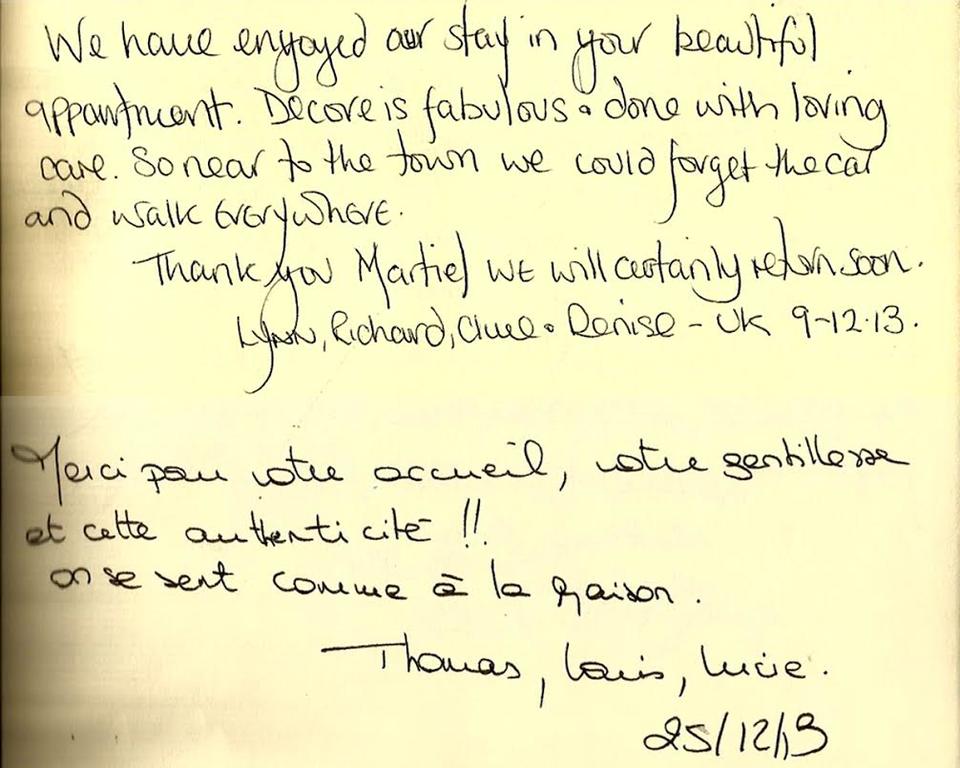 We have enyoyed our stay in your beautiful
appantment. Decore is fabulous & done with loving
care. So near to the town we could forget the car
and walk everywhere.
Thank you Martiel we will certainly return soon.
Lynn, Richard, Clive & Denise - UK 9-12-13.
Merci pour votre accueil, votre gentillesse
et cette authenticité !!
on se sent comme à la maison.
Thomas, Louis, Lucie.
25/12/13